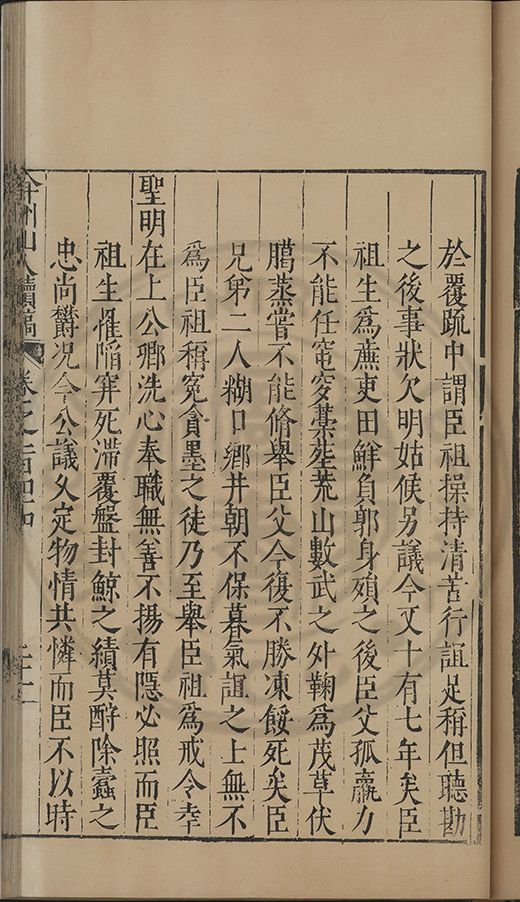 於覆疏中謂臣祖操持清苦行誼足稱但聽勘
之後事狀欠明姑候另議今又十有七年矣臣
祖生爲亷吏田鮮負郭身殞之後臣父孤羸力
不能任窀穸藁塟荒山數武之外鞠爲茂草伏
臈蒸嘗不能脩舉臣父今復不勝凍餒死矣臣
兄弟二人糊口鄉井朝不保暮氣誼之上無不
爲臣祖稱寃貪墨之徒乃至舉臣祖爲戒令幸
聖明在上公卿洗心奉職無善不揚有隱必照而臣
祖生罹陥穽死滯覆盤封鯨之績莫酧除蠹之
忠尚欝况今公議久定物情共憐而臣不以時
弇州山人續稿 卷之一百四十四